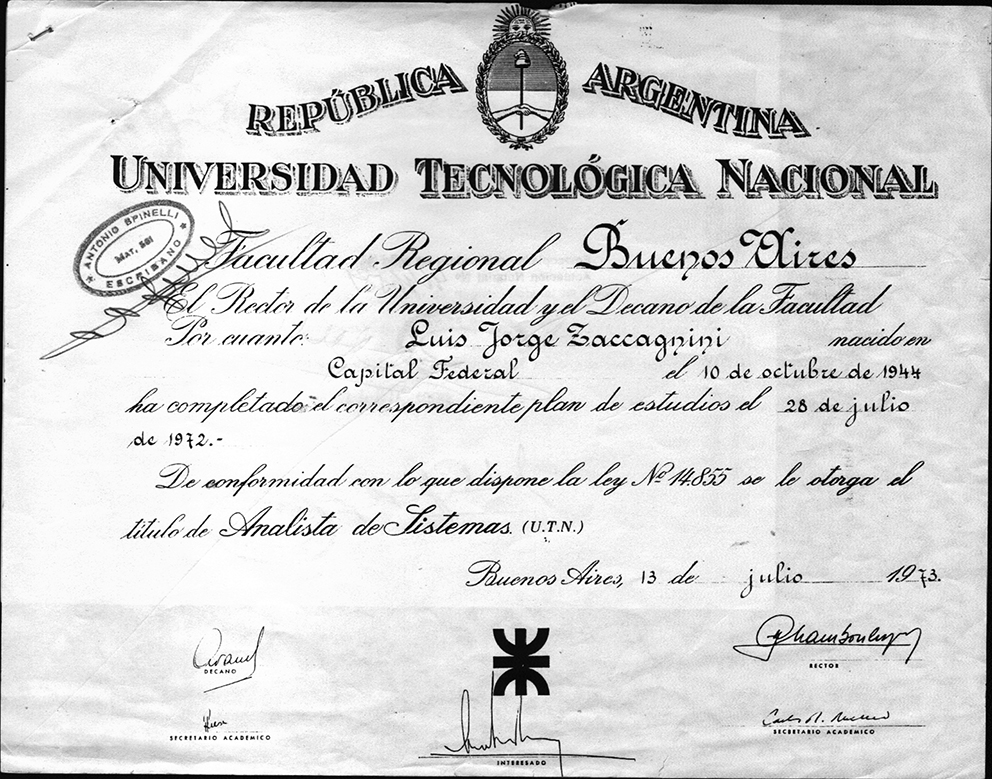 REPÚBLICA ARGENTINA
UNIVERSIDAD TECNOLÓGICA NACIONAL
ANTONIO SPINELLI
MAT. 581
ESCRIBANO
Facultad Regional Buenos Aires
El Rector de la Universidad y el Decano de la Facultad
Por cuanto: Luis Jorge Zaccagnini nacido en
Capital Federal el 10 de octubre de 1944
ha completado el correspondiente plan de estudios el 28 de julio
de 1972.-
De conformidad con lo que dispone la ley Nº 14.855 se le otorga el
título de Analista de Sistemas. (U.T.N.)
Buenos Aires, 13 de julio 1973.
DECANO
RECTOR
SECRETARIO ACADEMICO
INTERESADO
SECRETARIO ACADEMICO